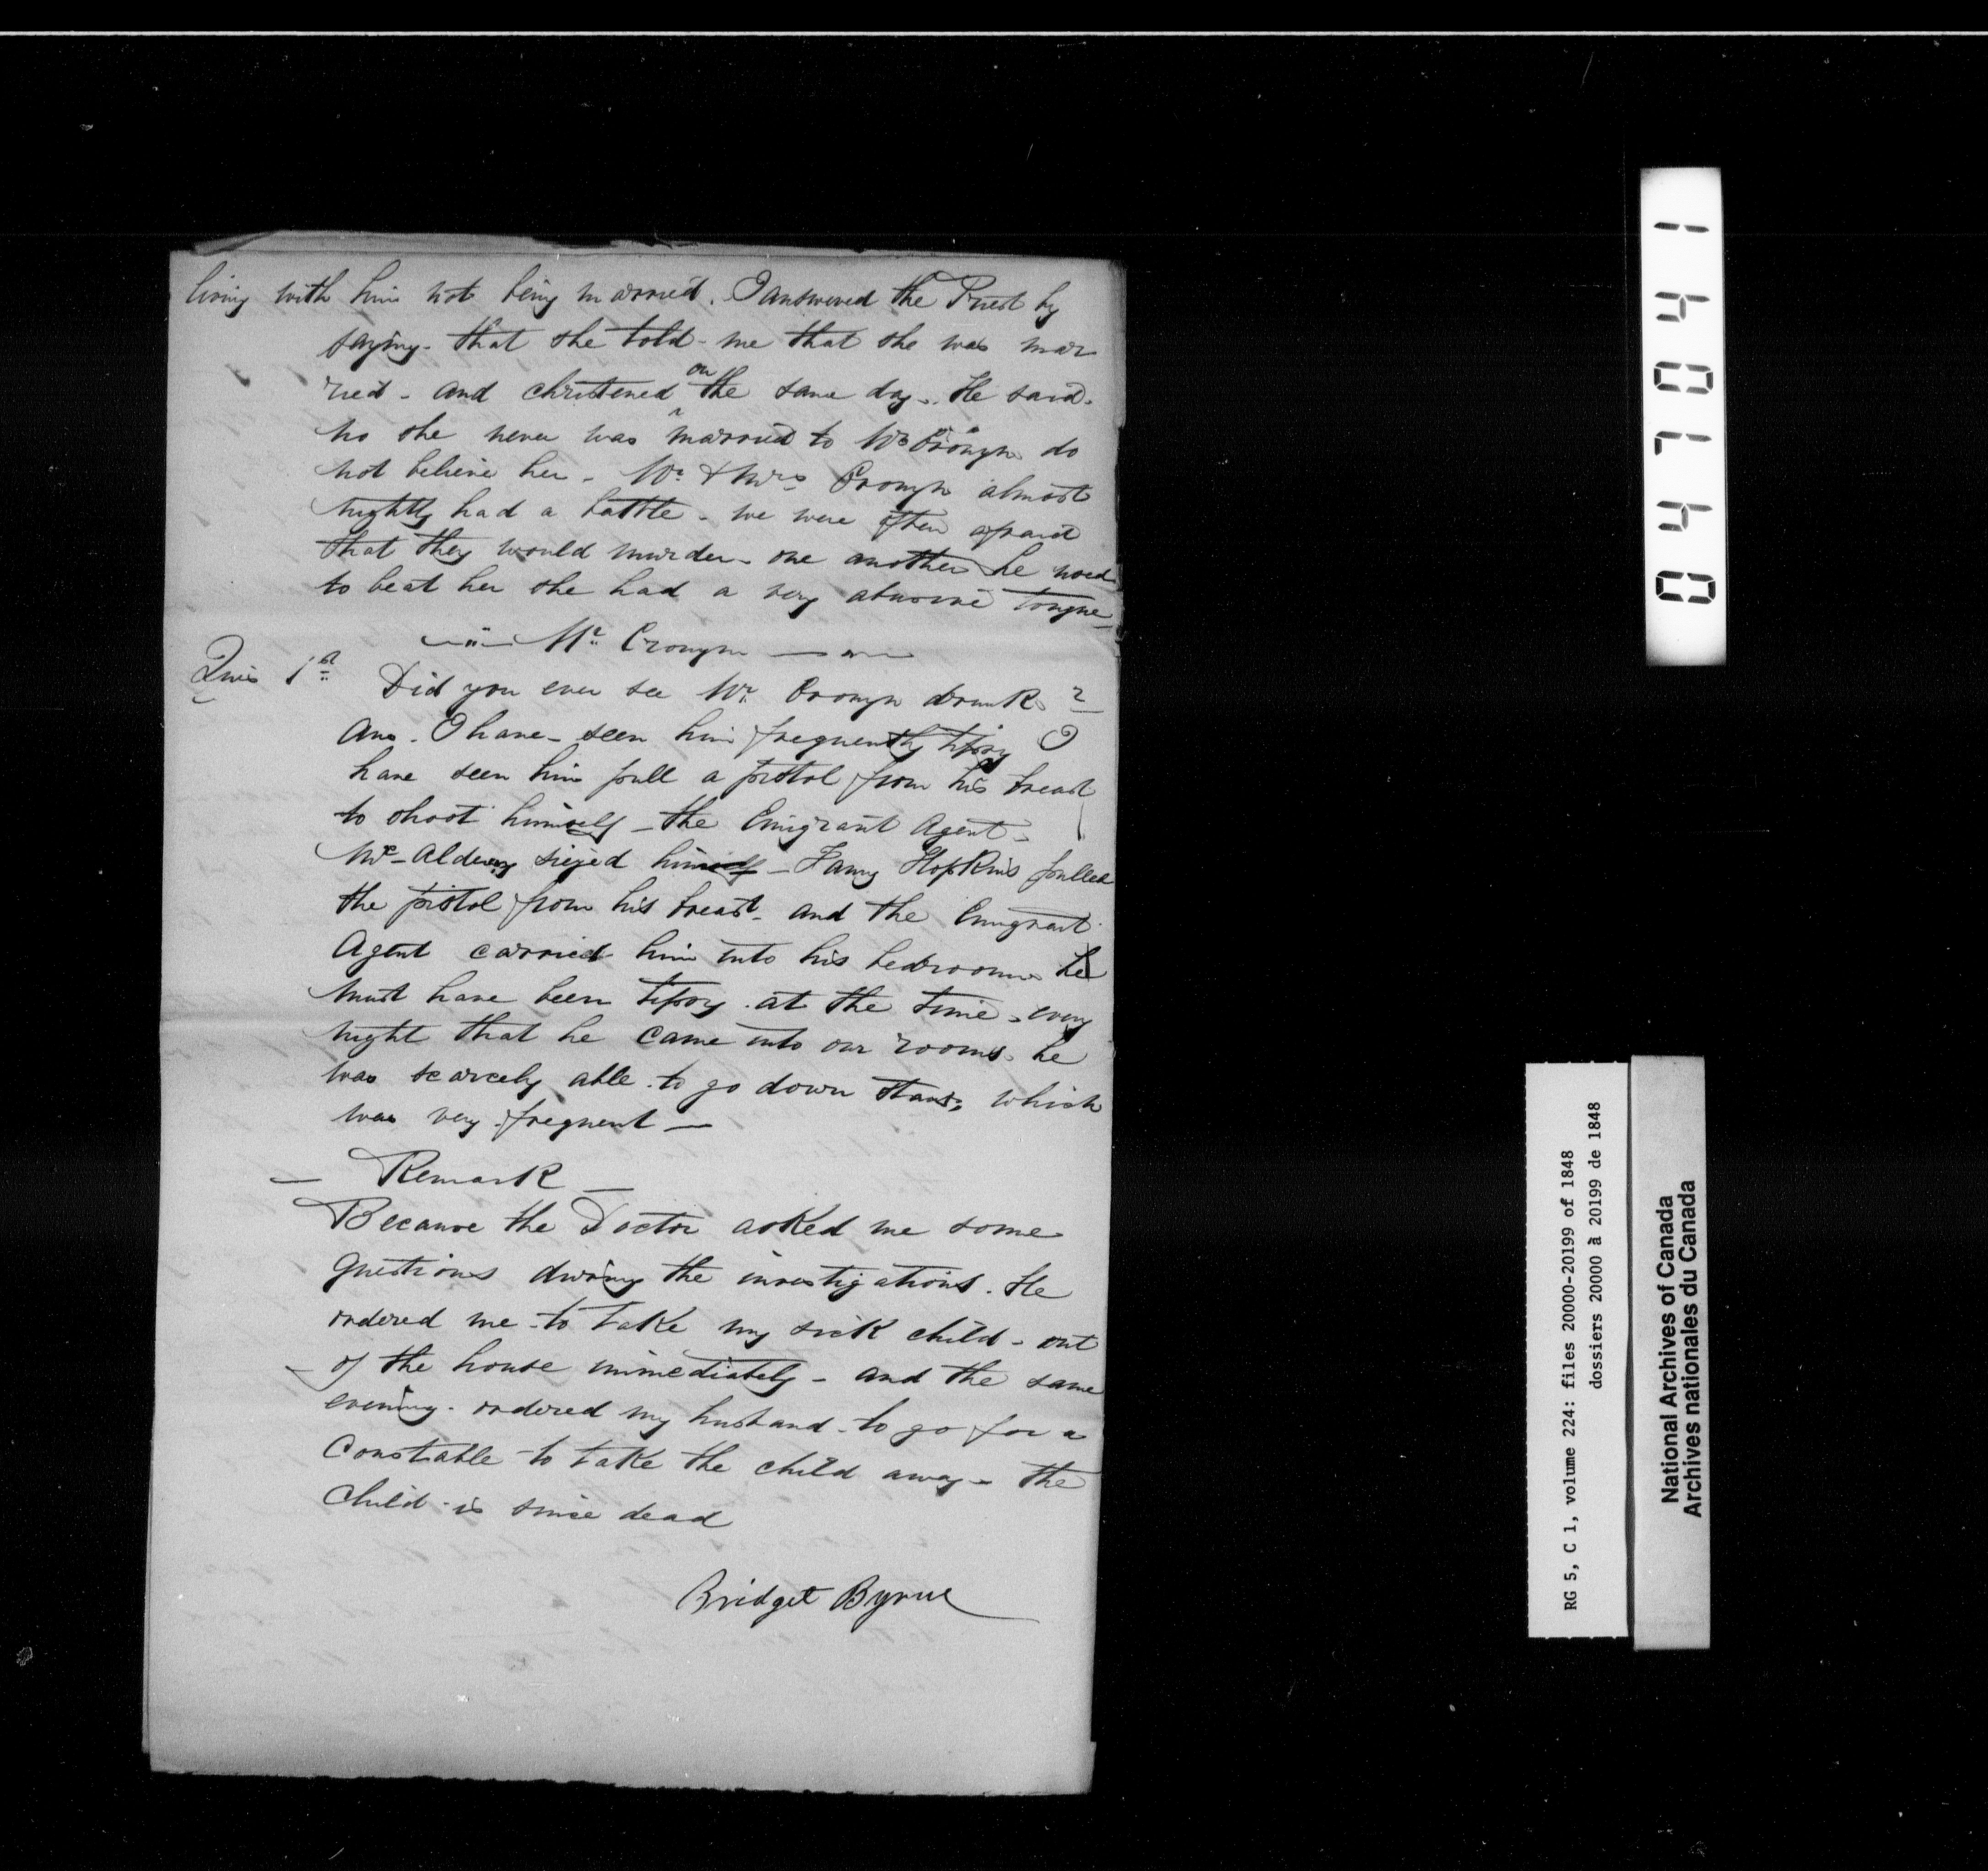 living with him not being married. I answered the Priest by
saying - that she told - me that she was mar
ried - and christened on the same day. He said.
no she never was married to Mr Cronyn do
not believe her - Mr. & Mrs Cronyn almost
nightly had a battle - we were often afraid
that they would murder - one another he used
to beat her she had a very abusive tongue
Mr. Cronyn
Ques 1st Did you ever see Mr. Cronyn drunk ?
Ans - I have - seen him frequently tipsy I
have seen him pull a pistol from his breast
to shoot himself - the Emigrant Agent -
Mr - siezed himself - Fanny Hopkins pulled
the pistol from his breast - and the Emigrant
Agent carried him into his bedroom he
must have been tipsy at the time - every
night that he came into our rooms he
was scarcely able to go down stairs, which
was very frequent —
— Remark —
Because the Doctor asked me some
questions during the investigations. He
ordered me - to take my sick child - out
of the house immediately - and the same
evening - ordered my husband - to go for a
Constable - to take the child away - the
child - is since dead
Bridget Byrne
047041
RG 5, C 1, volume 224: files 20000-20199 of 1848
dossiers 20000 à 20199 de 1848
National Archives of Canada
Archives nationales du Canada